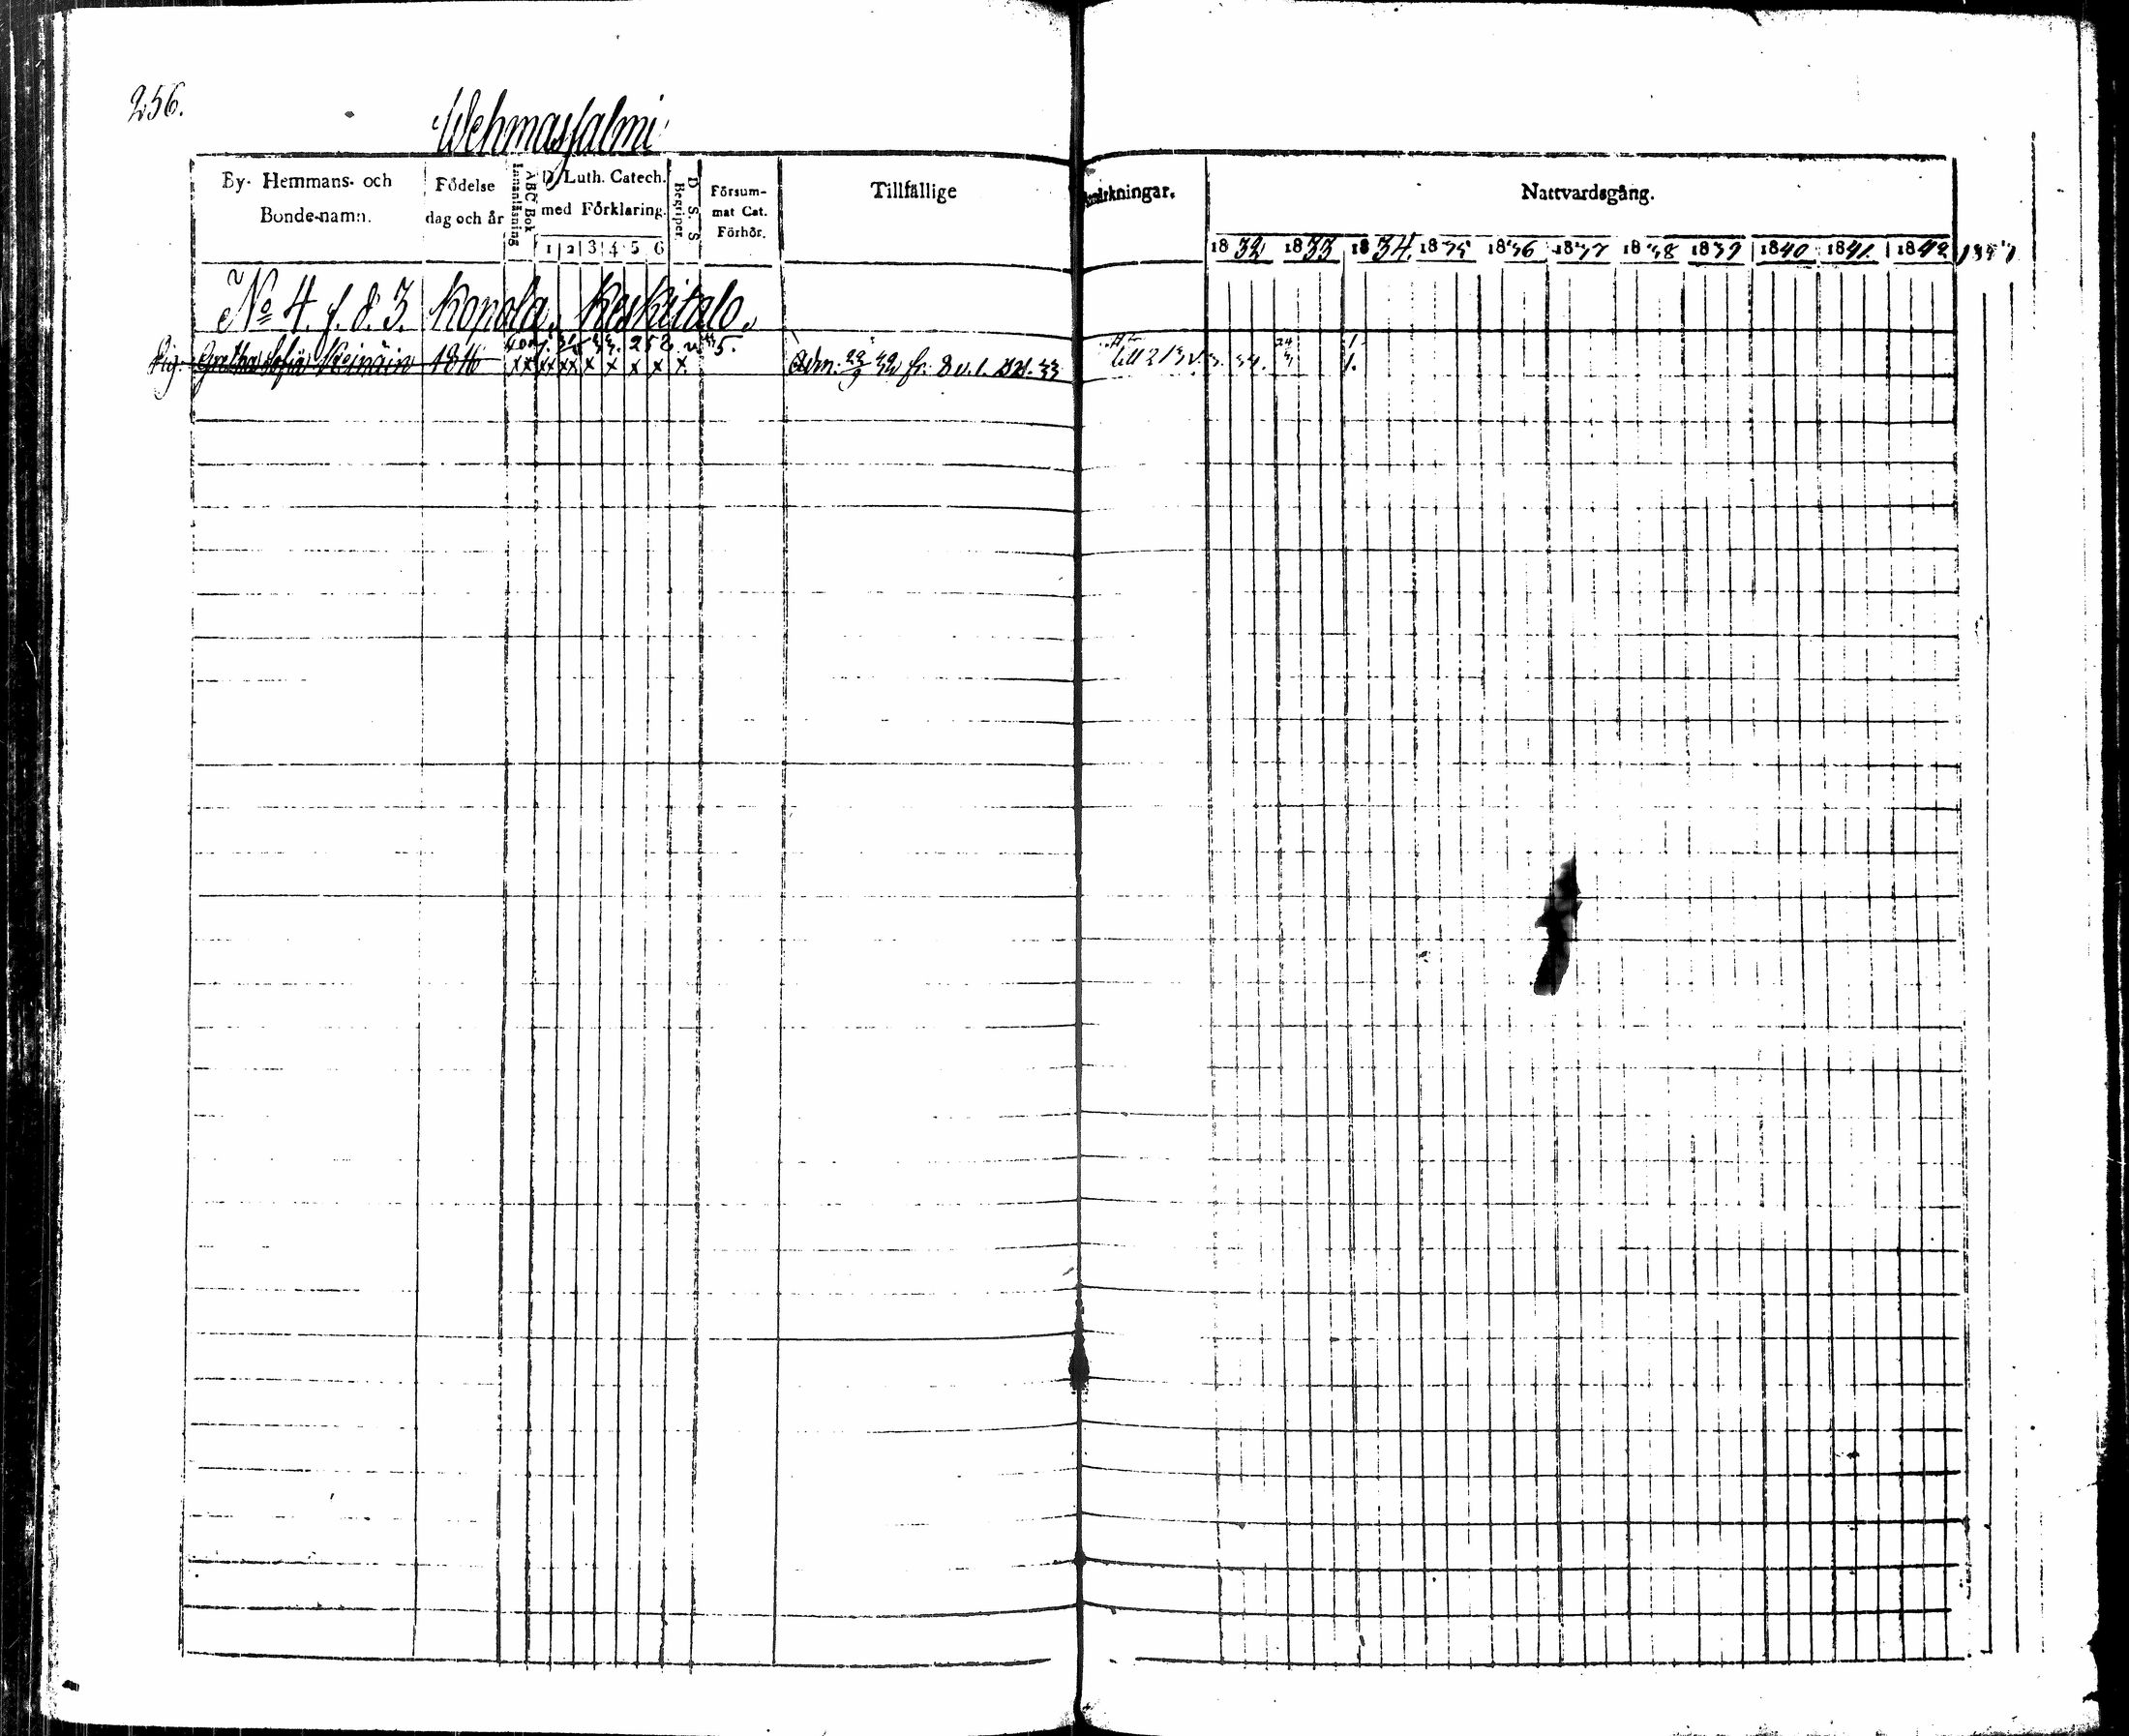 256.
Wehmasjalmi
By- Hemmans- och Bonde-namn.
Födelse dag och år
Innanläsning
ABC Bok
D. Luth. Catech. med Förklaring.
1 2 3 4 5 6
D. S. S. Begriper.
Försum- mat Cat. Förhör.
Tillfällige
Anmärkningar.
Nattvardsgång.
1832 1833 1834. 1835 1836 1837 1838 1839 1840 1841. 1842 1843
No 4. f. d. 3. Konola, Keskitalo.
Pig. Gretha Sofia Heinäin 1816
x x x x x x x x x x x
5.
fr.
till 213
24
1.
1.